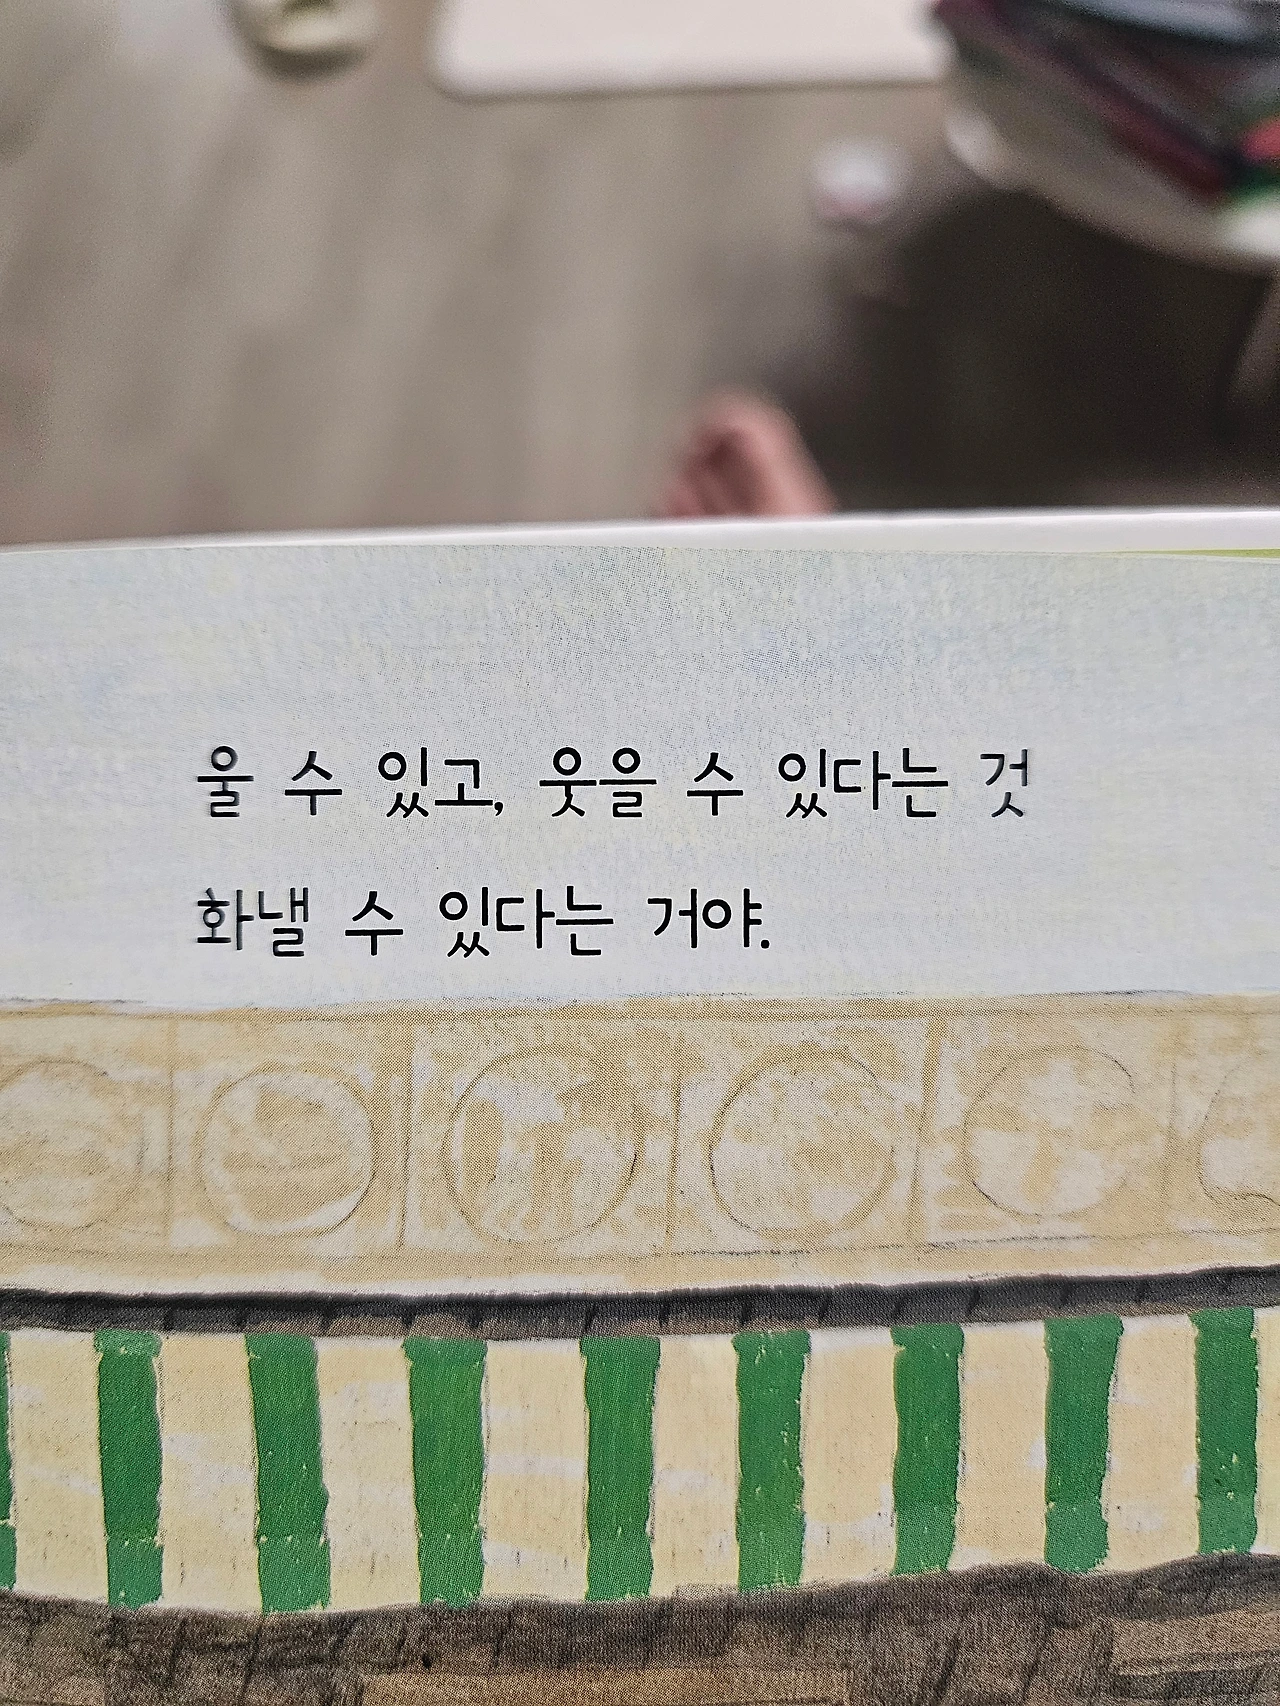 울 수 있고, 웃을 수 있다는 것
화낼 수 있다는 거야.